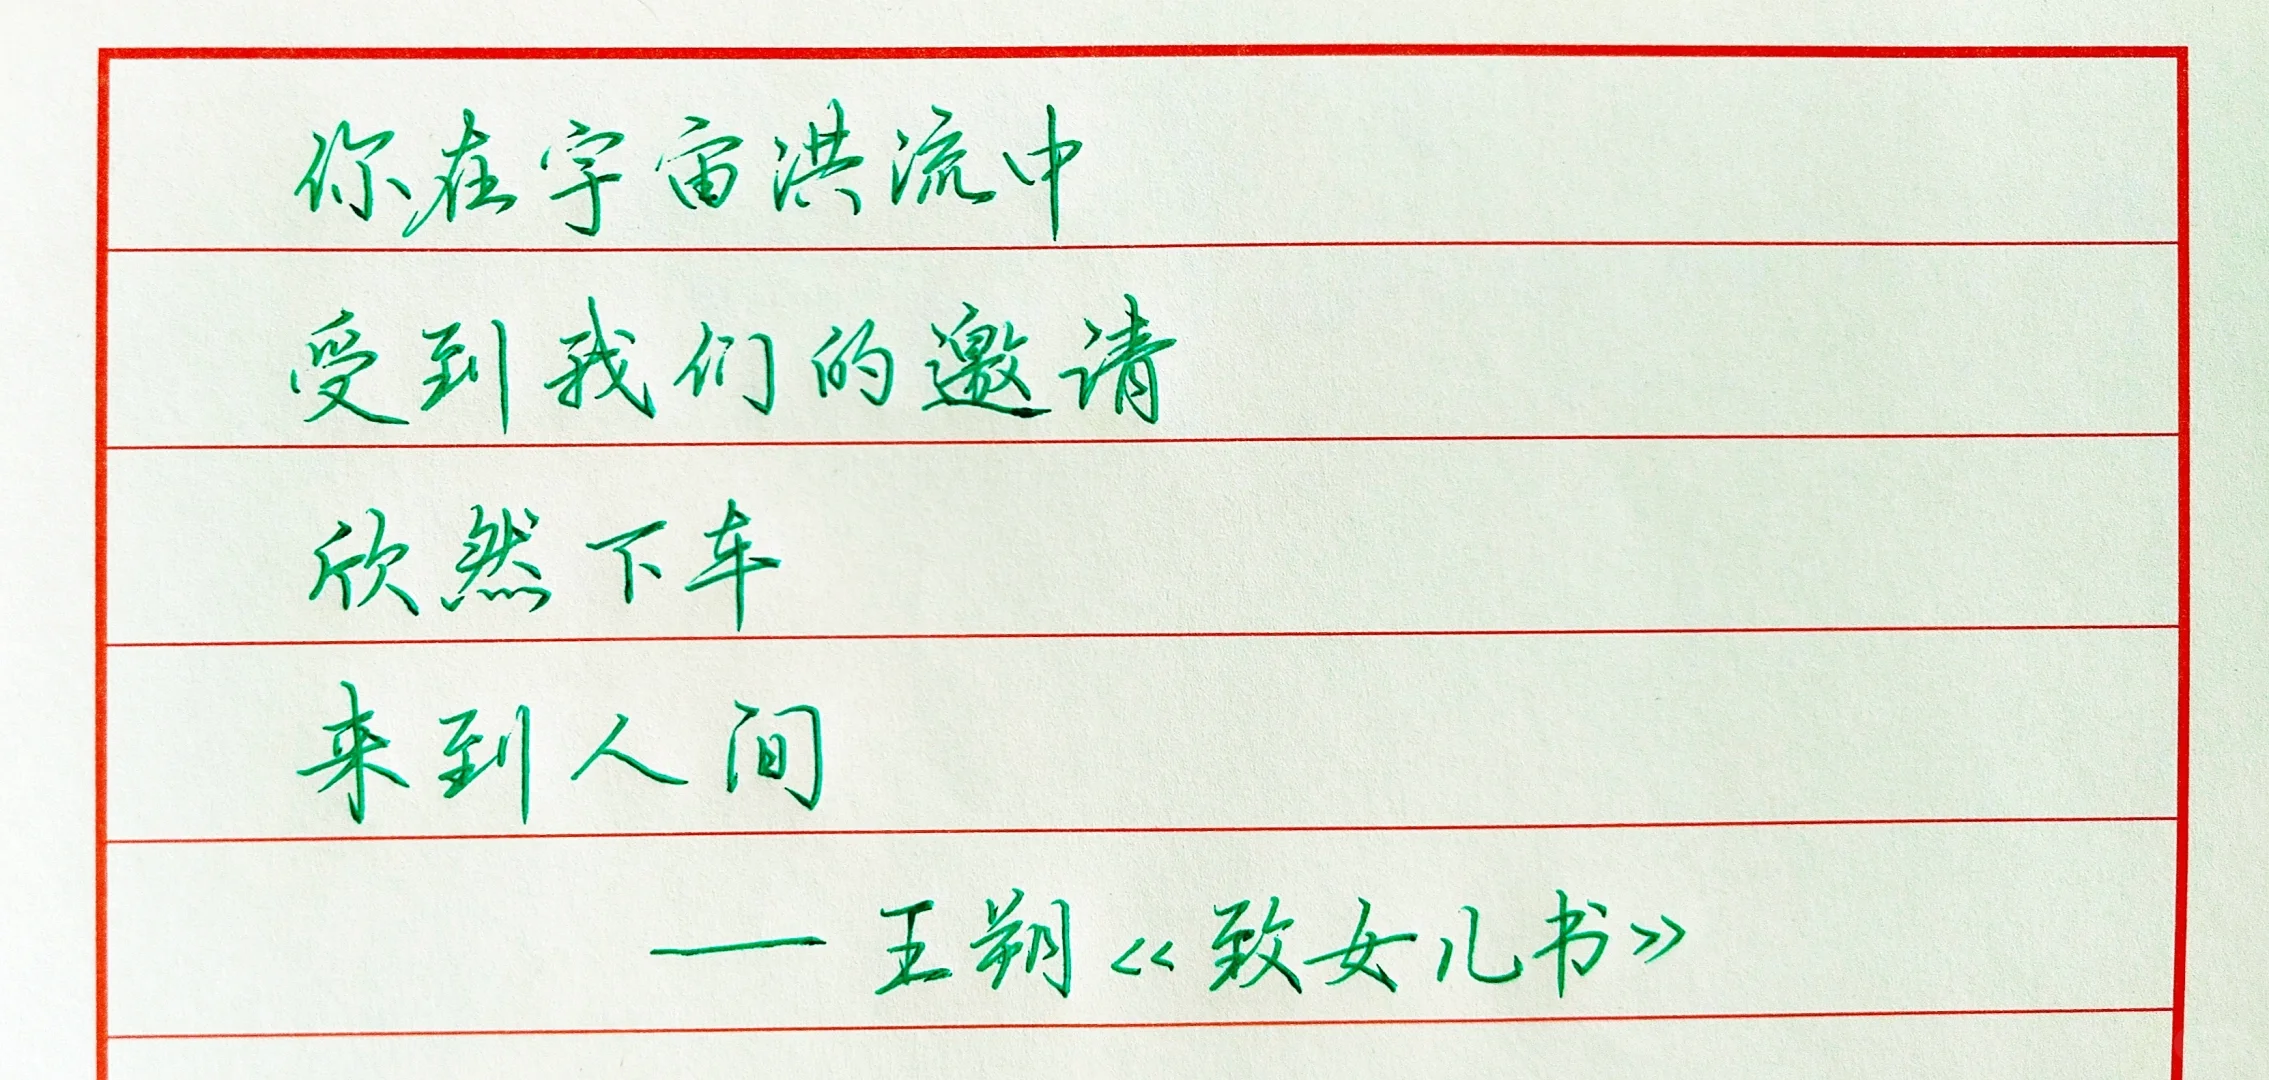 你在宇宙洪流中
受到我们的邀请
欣然下车
来到人间
——王朔《致女儿书》